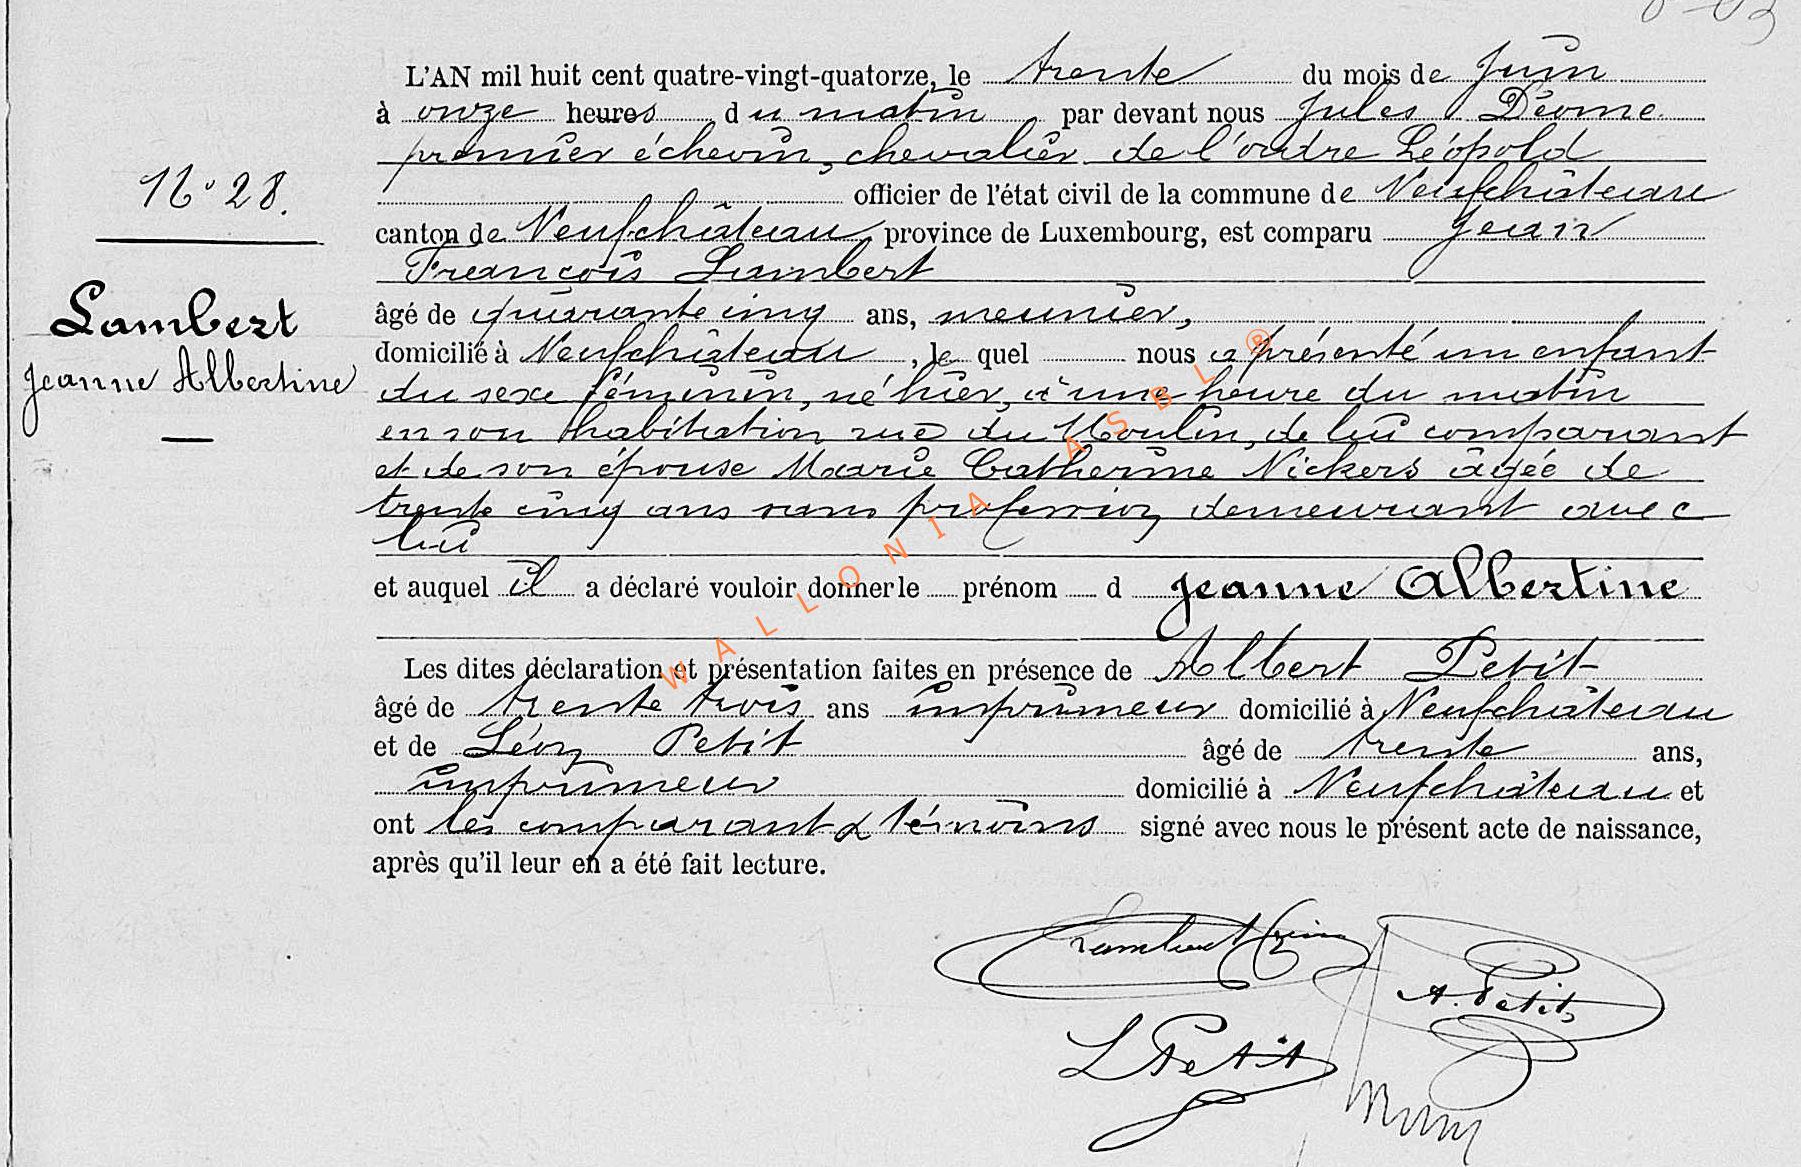 L'AN mil huit cent quatre-vingt-quatorze, le trente du mois de Juin
à onze heures du matin par devant nous Jules Déome
premier échevin, chevalier de l'ordre Léopold
officier de l'état civil de la commune de Neufchâteau
N° 28.
canton de Neufchâteau, province de Luxembourg, est comparu Jean
François Lambert
Lambert
Jeanne Albertine
âgé de quarante cinq ans, meunier,
domicilié à Neufchâteau, le quel nous a présenté un enfant
du sexe féminin, né hier, à une heure du matin
en son habitation rue du Moulin, de lui comparant
et de son épouse Marie Catherine Nickers âgée de
trente cinq ans sans profession demeurant avec
lui
et auquel il a déclaré vouloir donner le prénom d Jeanne Albertine
Les dites déclaration et présentation faites en présence de Albert Petit
âgé de trente trois ans imprimeur domicilié à Neufchâteau
et de Léon Petit âgé de trente ans,
imprimeur domicilié à Neufchâteau et
ont les comparant & témoins signé avec nous le présent acte de naissance,
après qu'il leur en a été fait lecture.
Lambert
A. Petit
L Petit
WALLONIA ASBL ®